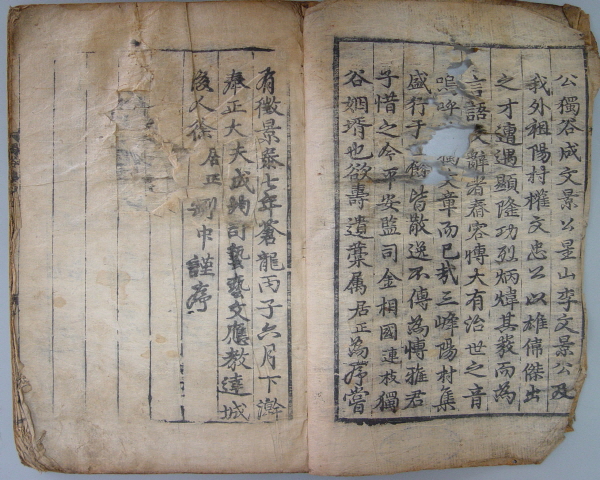 公獨谷成文景公星山李文景公及
我外祖陽村權文忠公以雄偉傑出
之才遭遇顯隆功烈炳煒其發而為
言語文辭者舂容愽大有治世之音
嗚呼獨文章而已㢤三峰陽村集
盛行于皆散逸不傳為愽雅君
子惜之今平安監司金相國連枝獨
谷姻壻也欲壽遺藁属居正為序嘗
有徵景泰七年蒼龍丙子六月下澣
奉正大夫成均司藝藝文應教達城
後人徐居正剛中謹序